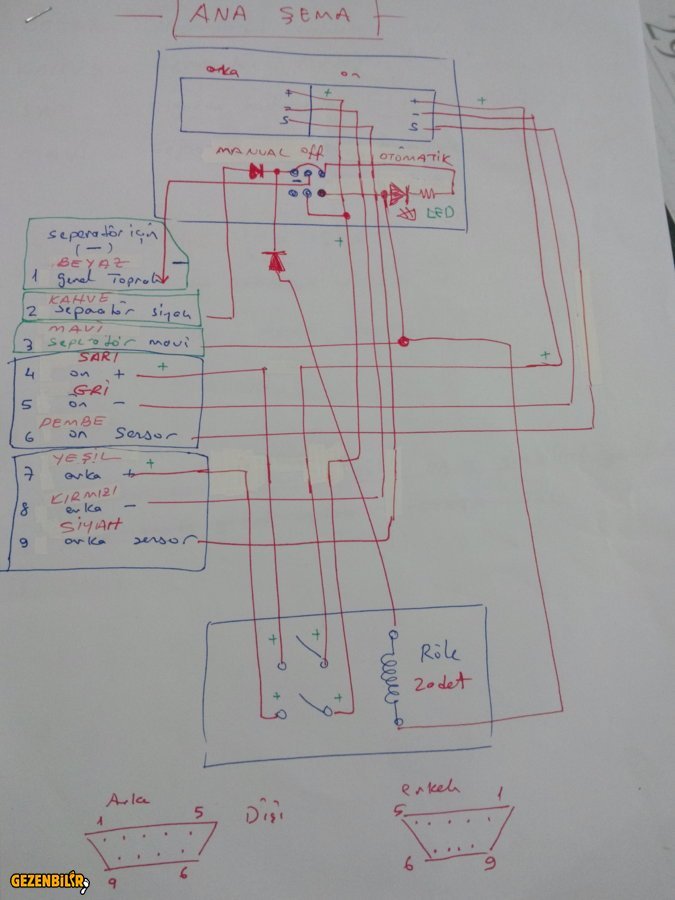 ANA ŞEMA
arka on
+ + + +
- -
S S
MANUAL off OTOMATİK
LED
+
seperatör için
(-)
BEYAZ -
1 genel Toprak
KAHVE
2 seperatör siyah
MAVİ
3 seperatör mavi
SARI
4 on + +
GRİ
5 ön -
PEMBE
6 on sensor
YEŞİL
7 arka + +
KIRMIZI
8 arka -
SİYAH
9 arka sensor
+
+ +
+ +
Röle
2 adet
Arka Dişi erkek
1 5 5 1
9 6 6 9
GEZENBİLİR